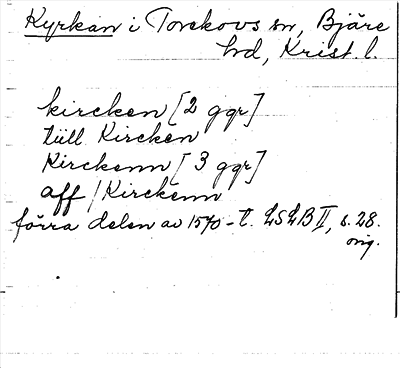 Kyrkan i Torekovs sn, Bjäre
hd, Krist. l.
kircken [2 ggr]
tüll Kircken
Kirckenn [3 ggr]
aff / Kirckenn
förra delen av 1570-t. LSLB II, s. 28.
orig.